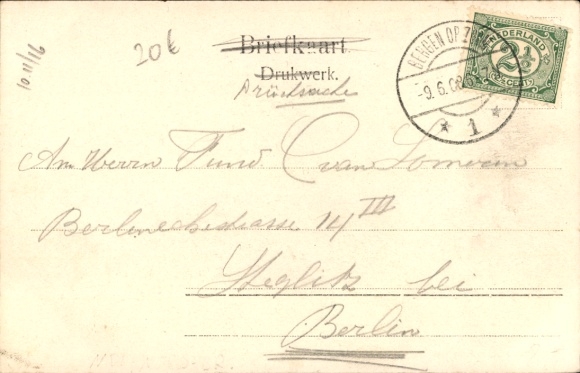 10 11/16
20€
Briefkaart
Drukwerk.
Drucksache
BERGEN OP ZOOM
-9.6.08
1
NEDERLAND
2½
CENT
An Herrn C van Lomeren
14 III
Steglitz bei
Berlin